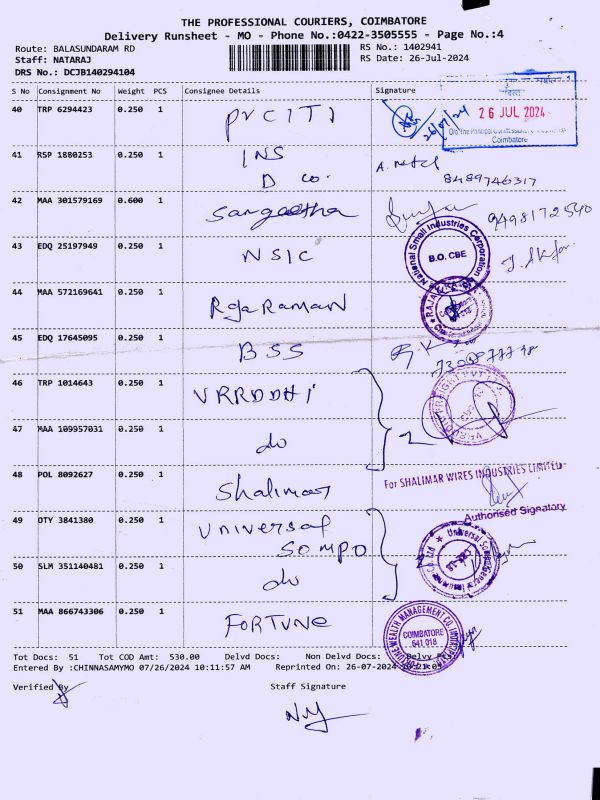 THE PROFESSIONAL COURIERS, COIMBATORE
Delivery Runsheet - MO - Phone No.:0422-3505555 - Page No.:4
Route: BALASUNDARAM RD
Staff: NATARAJ
DRS No.: DCJB140294104
RS No.: 1402941
RS Date: 26-Jul-2024
S No Consignment No Weight PCS Consignee Details Signature
40 TRP 6294423 0.250 1 26/07/24
26 JUL 2024
Coimbatore
41 RSP 1880253 0.250 1 INS
D co. 8489746317
42 MAA 301579169 0.600 1 Sangeetha 9498172540
43 EDQ 25197949 0.250 1 NSIC
National Small Industries Corporation
B.O. CBE
44 MAA 572169641 0.250 1 RajaRaman
45 EDQ 17645095 0.250 1 BSS
46 TRP 1014643 0.250 1 VRRDDHI
47 MAA 109957031 0.250 1 do 2
48 POL 8092627 0.250 1 Shalimar
For SHALIMAR WIRES INDUSTRIES LIMITED
Authorised Signatory
49 OTY 3841380 0.250 1 Universal
SOMPO
50 SLM 351140481 0.250 1 do
51 MAA 866743306 0.250 1 FORTUNE
COIMBATORE
641 018
Tot Docs: 51 Tot COD Amt: 530.00 Delvd Docs: Non Delvd Docs:
Entered By :CHINNASAMYMO 07/26/2024 10:11:57 AM Reprinted On: 26-07-2024
Verified By Staff Signature